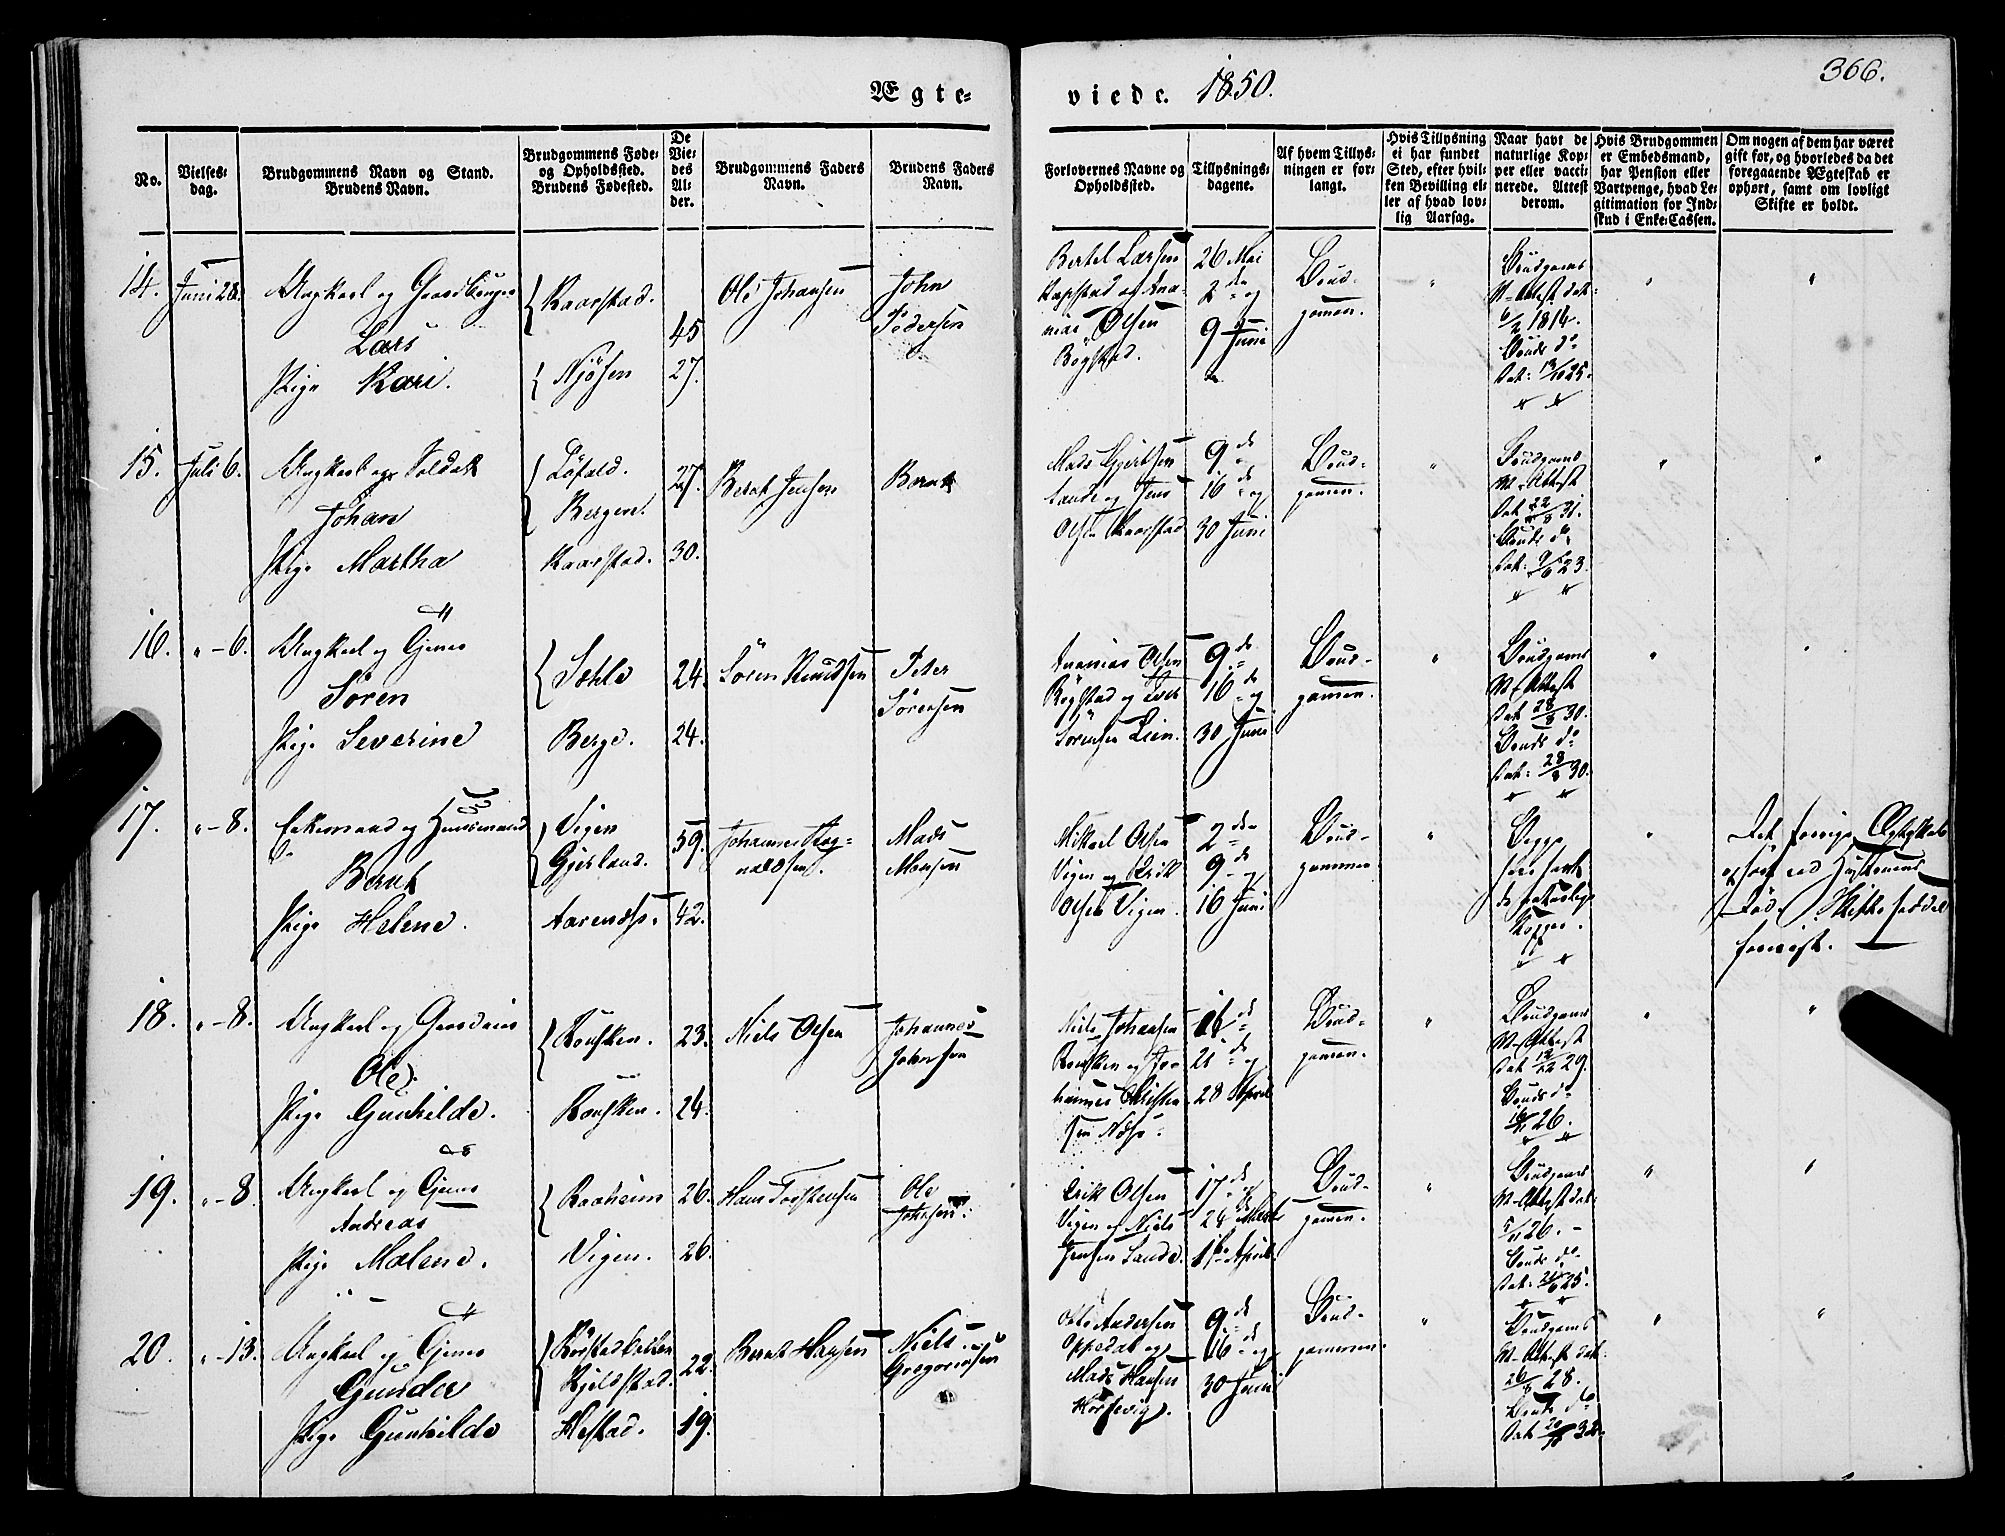 366.
Ægte-
viede. 1850.
No.
Vielses-
dag.
Brudgommens Navn og Stand.
Brudens Navn.
Brudgommens Føde-
og Opholdssted.
Brudens Fødested.
De
Vie-
des
Al-
der.
Brudgommens Faders
Navn.
Brudens Faders
Navn.
Forlovernes Navne og
Opholdssted.
Tillysnings-
dagene.
Af hvem Tillys-
ningen er for-
langt.
Hvis Tillysning
ei har fundet
Sted, efter hvil-
ken Bevilling el-
ler af hvad lov-
lig Aarsag.
Naar havt de
naturlige Kop-
per eller vacci-
nerede. Attest
derom.
Hvis Brudgommen
er Embedsmand,
har Pension eller
Vartpenge, hvad Le-
gitimation for Ind-
skud i Enke-Cassen.
Om nogen af dem har været
gift før, og hvorledes da det
foregaaende Ægteskab er
ophørt, samt om lovligt
Skifte er holdt.
14. Juni 28. Ungkarl og Gaardbruger
Lars
Pige Kari.
Kaarstad.
Njøsen
45
27.
Ole Johansen
John
Pedersen
Bertel Larsen
og Ana-
nias Olsen
Bøgstad.
26 Mai
2den og
9 Juni
Brud-
gomen.
Brudgoms
V-Attest dat:
6/2 1814.
Bruds do
Dat: 25.
15. Juli 6. Ungkarl og Soldat
Johan
Pige Martha
Løfald.
Bergen.
Kaarstad.
27.
30.
Bernt Jensen
Bernt
Mads Gjertsen
Sande og Jens
Olsen Kaarstad
9de
16de og
30 Juni
Brud-
gomen.
Brudgoms
V-Attest
Dat 22/8 31.
Bruds do
Dat: 9/6 23.
16. " - 6. Ungkarl og Tjener
Søren
Pige Severine
Sæhle
Berge.
24.
24.
Søren Knudsen
Peter
Sørensen
Ananias Olsen
Bøgstad og
Sørensen Lien.
9de
16de og
30 Juni
Brud-
gomen.
Brudgoms
V-Attest
Dat 28/8 30.
Bruds do
Dat: 28/8 30.
17. " - 8. Enkemand og Huusmand
Bernt
Pige Helene.
Vigen
Gjerland.
59.
42.
Johannes Rag-
naldsen.
Mads
Monsen
Mikael Olsen
Vigen og Erik
Olsen Vigen.
2den
9de og
16 Juni
Brud-
gommen
Begge
have havt
de naturlige
Kopper.
Det forrige Ægteskab
ophørt ved Hustruens
Død. Skifteseddel
foreviist.
18. " - 8. Ungkarl og
Ole.
Pige Gunhilde.
23.
24.
Niels Olsen
Johannes
Johnsen
Niels Johansen
og Jo-
hannes Christen-
sen Næss.
de
21de og
28 April
Brud-
gomen.
Brudgoms
V-Attest
Dat 29.
Bruds do
26.
19. " - 8. Ungkarl og Tjener
Andreas
Pige Malene.
Raaheim
Vigen.
26.
26.
Hans Torstensen
Ole
Johnsen.
Erik Olsen
Vigen og Niels
Jensen Sande.
17de og
24 Marts
1ste April.
Brud-
gomen.
Brudgoms
V-Attest dat:
26. -
Bruds do
Dat: 25.
20. " - 13. Ungkarl og Tjener
Gunder
Pige Gunhilde
Kjelstad.
Hestad.
22.
19.
Bernt Hansen
Niels
Gregoriusen
Otto Andersen
Oppedal og
Mads Hansen
Horsevig.
9de
16de og
30 Juni
Brud-
gommen.
Brudgoms
V-Attest dat:
26/8 28.
Bruds do
Dat 32.